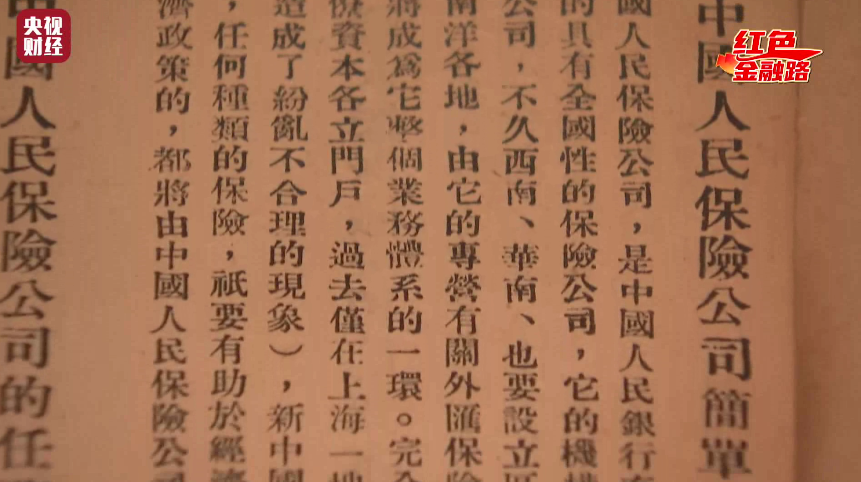 央视
财经
红色
金融路
中國人民保險公司簡單
國人民保險公司，是中國人民銀行
的具有全國性的保險公司，它的機構
公司，不久西南、華南、也要設立
南洋各地，由它的專營有關外匯保險
將成為它整個業務體系的一環。完全
資本各立門戶，過去僅在上海一地
造成了紛亂不合理的現象），新中國
，任何種類的保險，祇要有助於經濟
濟政策的，都將由中國人民保險公司
中國人民保險公司的任